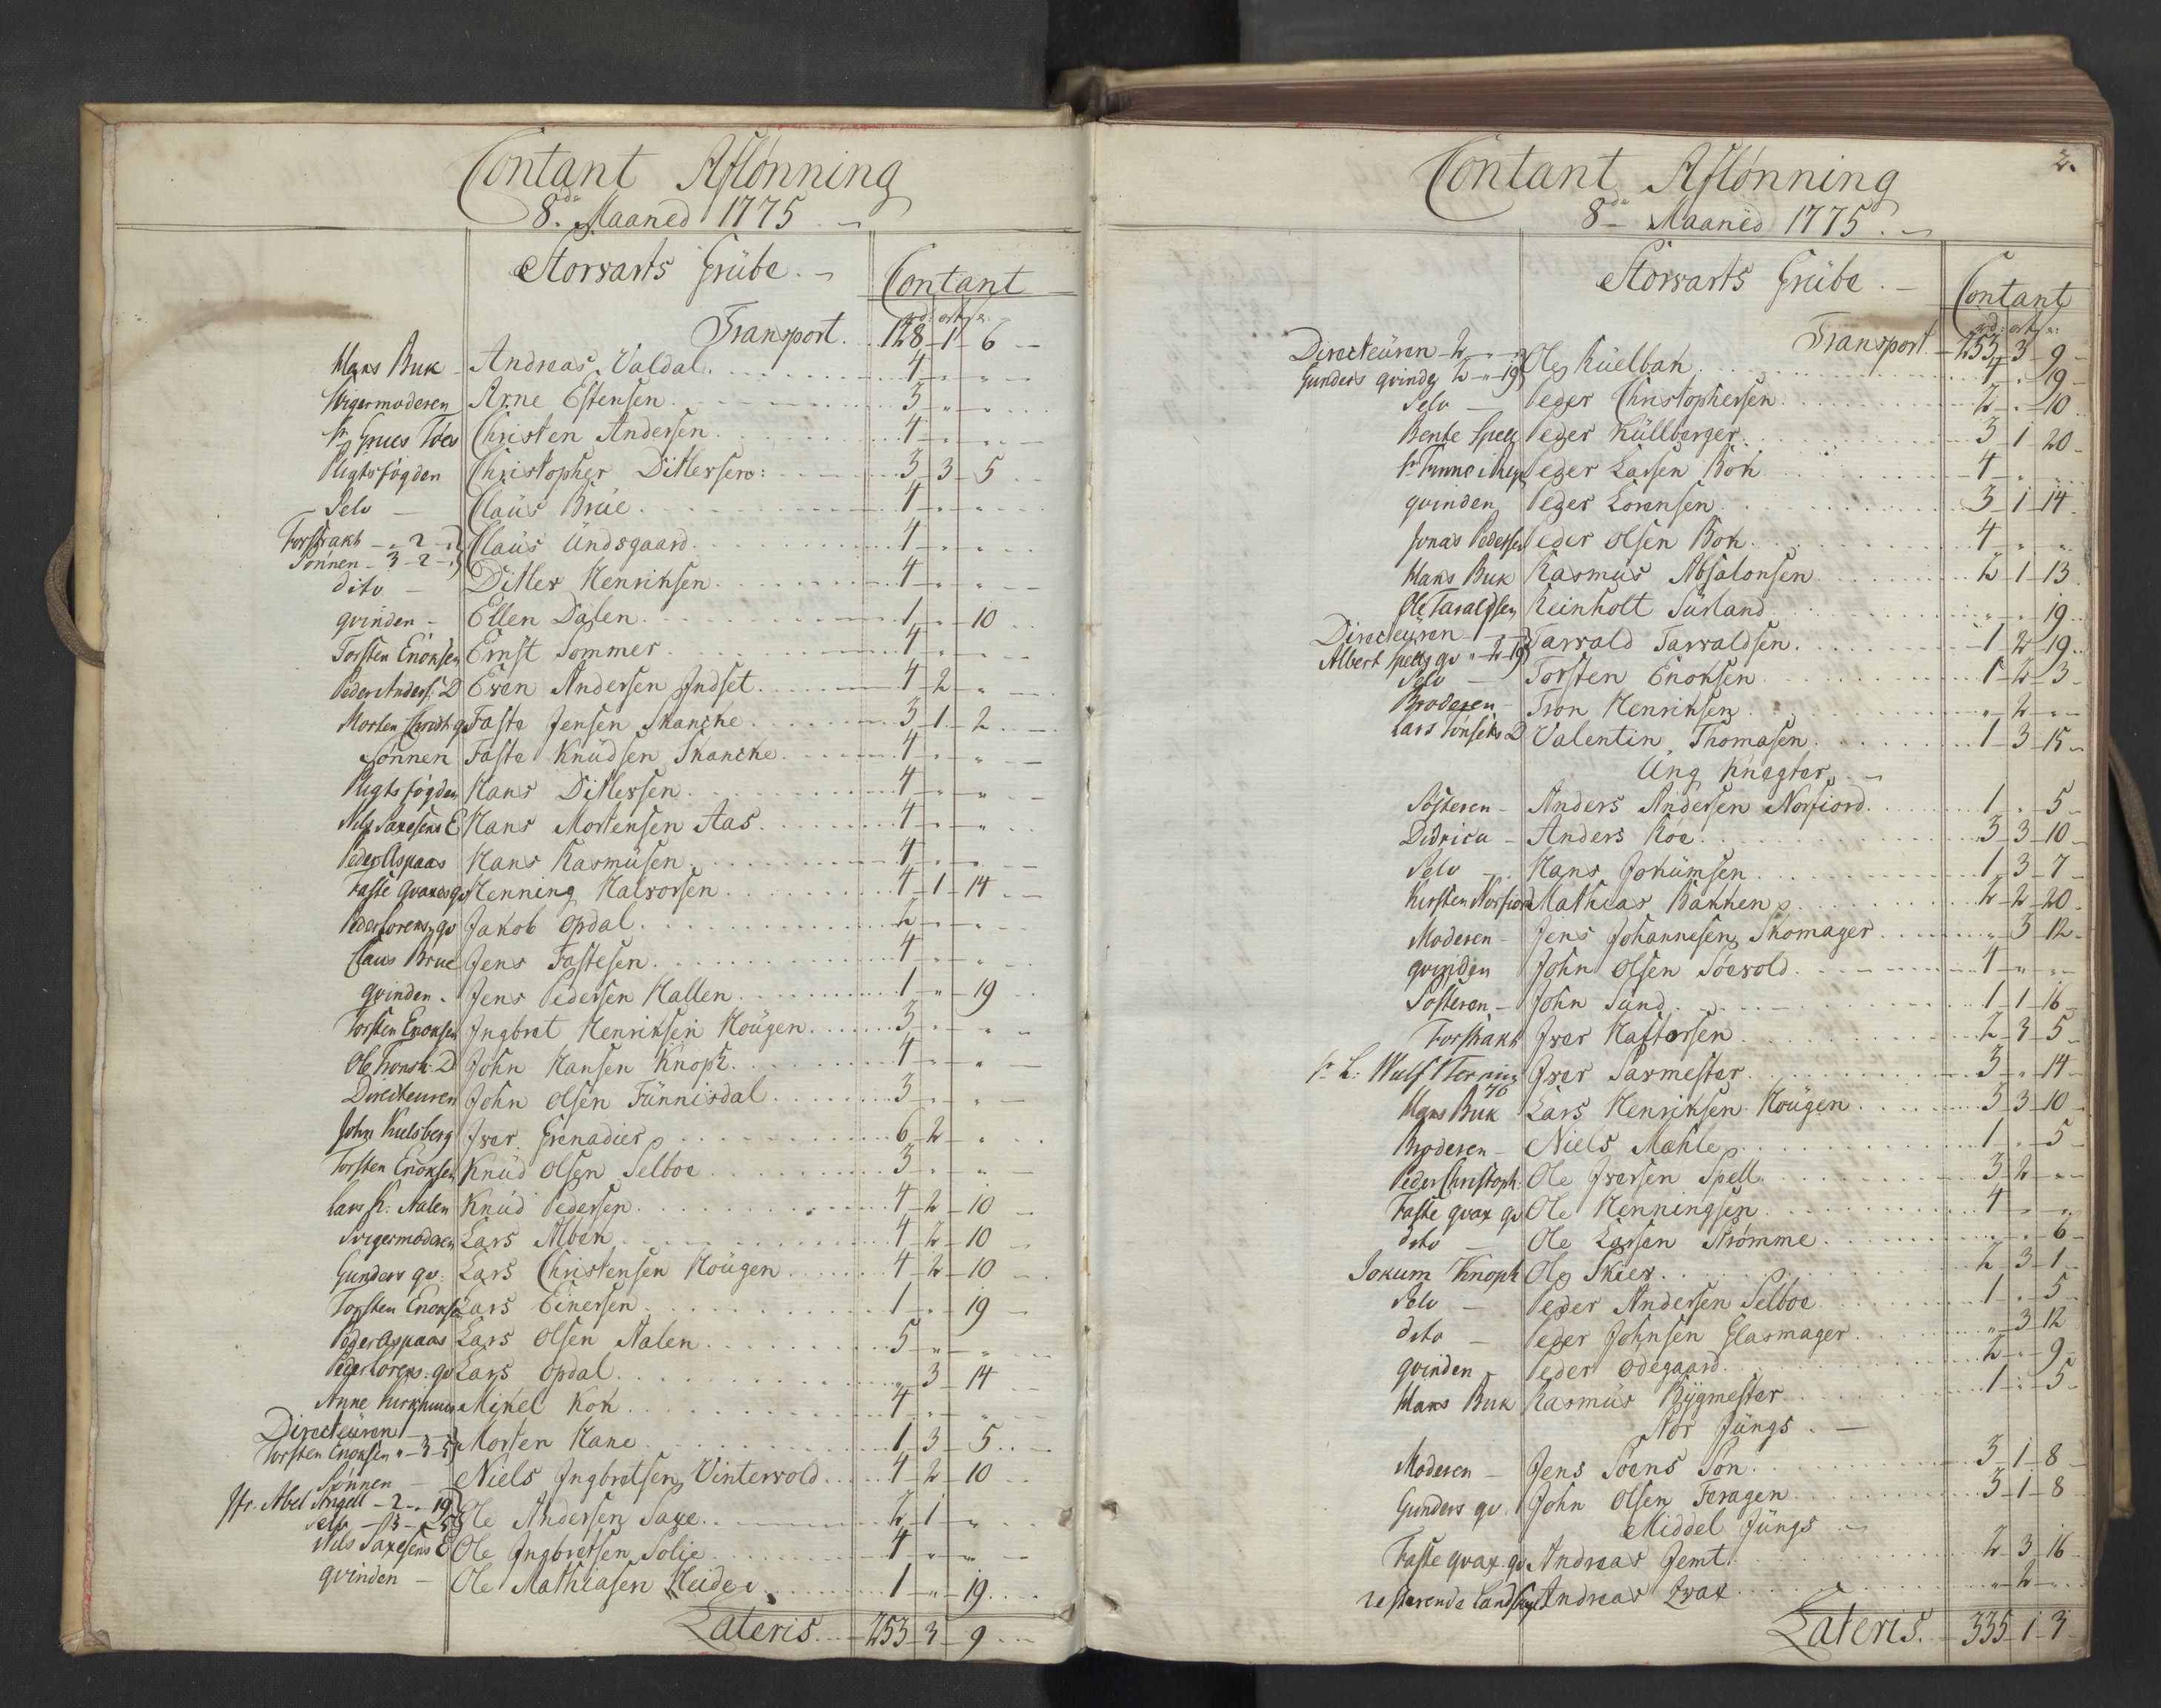 Contant Aflønning
8de Maaned 1775
Storvarts Grübe
Contant
rd: ort sz:
Transport 128 1 6
Hans Buk Andreas Valdal 4 " "
Svigermoderen Arne Estensen 3 " "
Christen Andersen 4 " "
Pligtsfogden Christopher Ditlevsen: 3 3 5
Selv Claüs Brüe 4 " "
Forstrakt " 2 "
Claüs Ündsgaard 4 " "
Sønnen 3 2 "
dito Ditlev Henriksen 4 " "
qvinden Ellen Dalen 1 " 10
Torsten Enoksen Ernst Sommer 4 " "
Peder Anders: D Even Andersen Indset 4 2 "
Morten Christ: qv Faste Jensen Skancke 3 1 2
Sønnen Faste Knüdsen Skancke 4 " "
Pligtsfogden Hans Ditlevsen 4 " "
Nils Saxesens E Hans Mortensen Aas 4 " "
Peder Aspaas Hans Rasmüsen 4 " "
Faste Qvaxes qv Henning Halvorsen 4 1 14
Peder Lorens: qv Jakob Opdal 2 " "
Claus Brue Jens Fastesen 4 " "
qvinden Jens Pedersen Hallen 1 " 19
Torsten Enoksen Ingbret Henriksen Hoügen 3 " "
Ole Tronsk: D John Hansen Knoph 4 " "
Directeuren John Olsen Fünnisdal 3 " "
John Kuelsberg Iver Grenadier 6 2 "
Torsten Enoksen Knüd Olsen Selboe 3 " "
Lars h: Aalen Knüd Pedersen 4 2 10
Svigermoderen Lars Alben 4 2 10
Gunders qv: Lars Christensen Hoügen 4 2 10
Torsten Enoksen Lars Einersen 1 " 19
Peder Aspaas Lars Olsen Aalen 5 " "
Peder Lorens: qv Lars Opdal " 3 14
Anne Mikel Kok 4 " "
Directeüren 1 " "
Morten Hane 1 3 5
Torsten Enoksen " 3 5
Sønnen Niels Ingbretsen Vintervold 4 2 10
Jfr. Abel Angell 2 " 19
Ole Andersen Saxe 2 1 "
Selv
Nils Saxesens E Ole Ingbretsen Solie 4 " "
qvinden Ole Mathiasen Heide 1 " 19
Lateris 253 3 9
2.
Contant Aflønning
8de Maaned 1775
Storvarts Grübe
Contant
rd: ort sz:
Transport 253 3 9
Directeüren 2 " "
Ole Küelbak 4 " 19
Gunders qvinde 2 " 19
Selv Peder Christophersen 2 " 10
Bente Spell Peder Küllberger 3 1 20
Peder Larsen Bok 4 " "
qvinden Peder Lorensen 3 1 14
Jonas Pedersen Peder Olsen Bok 4 " "
Hans Buk Rasmüs Absalonsen 2 1 13
Ole Taraldsen Reinholt Sürland " " 19
Directeüren 1 " "
Tarvald Tarvaldsen 1 2 19
Albert Spells qv " 2 19
Selv Torsten Enoksen 1 2 3
Broderen Tron Henriksen " 2 "
Lars Tønsets D Valentin Thomasen 1 3 15
Ung Knegter
Søsteren Anders Andersen Norfiord 1 " 5
Didrica Anders Roe 3 3 10
Selv Hans Jokümsen 1 3 7
Kirsten Norfiord Mathias Bakken 2 2 20
Moderen Jens Johannesen Skomager " 3 12
qvinden John Olsen Søevold 4 " "
Søsteren John Sund 1 1 16
Forstrakt Iver Haftorsen 2 3 5
Sr L: Wulf Iver Sarmester 3 " 14
Hans Buk Lars Henriksen Hoügen 3 3 10
Broderen Niels Mæhle 1 " 5
Peder Christoph: Ole Iversen Spell 3 2 "
Faste Qvax qv Ole Henningsen 4 " "
dito Ole Larsen Strømme " " 6
Jokum Knoph Ole Skier 2 3 1
Selv Peder Andersen Selboe 1 " 5
dito Peder Johnsen Glasmager " 3 12
qvinden Peder Ødegaard 2 " 9
Hans Buk Rasmüs Bÿgmester 1 " 5
Nor Jüngs
Moderen Jens Soens Søn 3 1 8
Gunders qv: John Olsen Feragen 3 1 8
Middel Jüngs
Faste Qvax qv Andreas Jemt 2 3 16
resterende Andreas Qvax " 2 "
Lateris 335 1 3